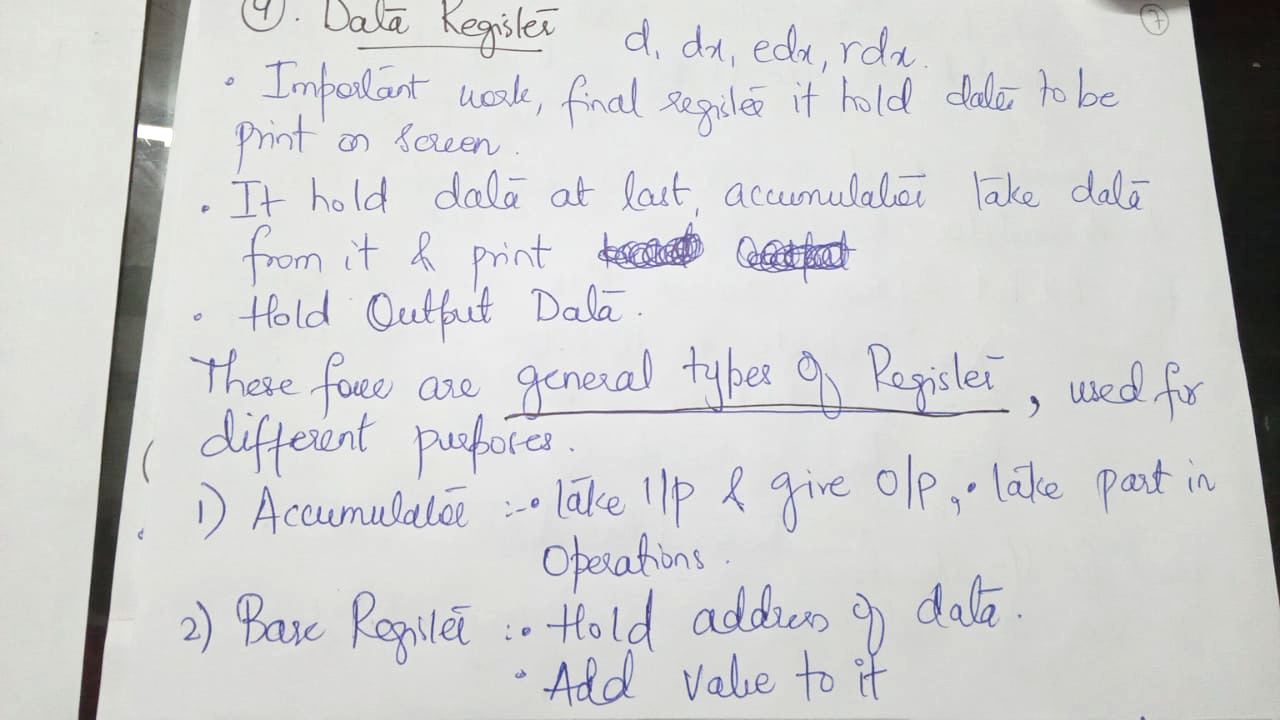 7
4. Data Register
d, dx, edx, rdx.
• Important work, final register it hold data to be
print on screen.
• It hold data at last, accumulator take data
from it & print
• Hold Output Data.
These four are general types of Register, used for
different purposes.
1) Accumulator :- • take I/p & give O/p, • take part in
Operations.
2) Base Register :- • Hold address of data.
• Add value to it